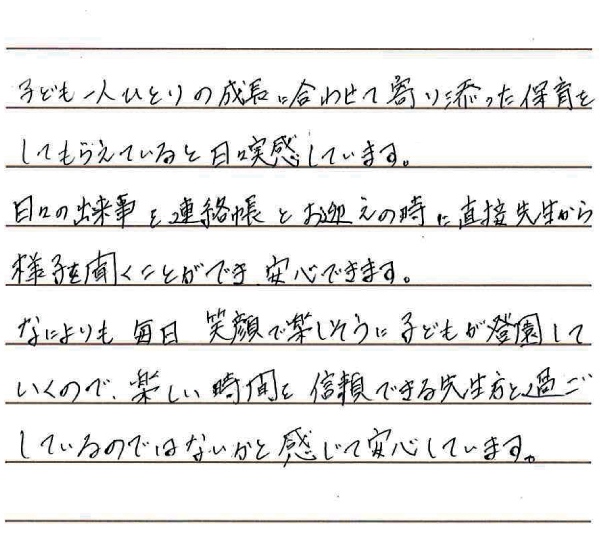 子ども一人ひとりの成長に合わせて寄り添った保育を
してもらえていると日々実感しています。
日々の出来事を連絡帳とお迎えの時に直接先生から
様子を聞くことができ 安心できます。
なによりも 毎日 笑顔で楽しそうに子どもが登園して
いくので、楽しい時間を 信頼できる先生方と過ご
しているのではないかと感じて安心しています。